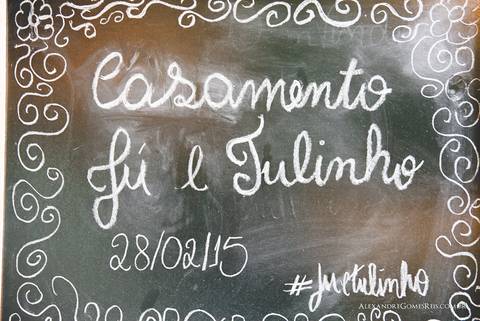 Casamento
Jú e Tulinho
28/02/15
#juetulinho
ALEXANDREGOMESREIS.COM.BR